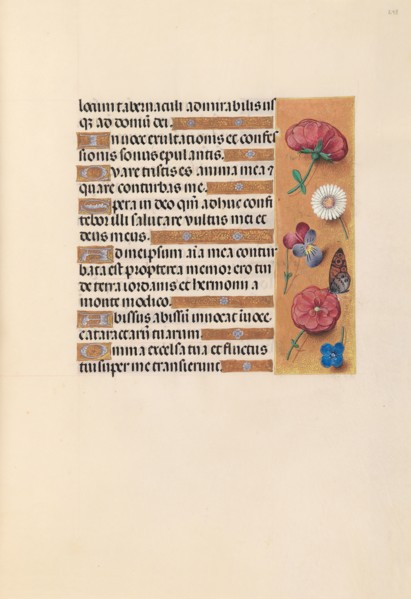 locum tabernaculi admirabilis us
qȝ ad domū dei.
In uoce exultationis et confes
sionis sonus epulantis.
Quare tristis es anima mea ⁊
quare conturbas me.
Spera in deo qm̄ adhuc confi
tebor illi salutare vultus mei et
deus meus.
Ad meipsum aīa mea contur
bata est propterea memor ero tui
de terra iordanis et hermonii a
monte modico.
Abissus abissū inuocat in uoce
cataractarū tuarum
Omnia excelsa tua et fluctus
tui super me transierunt.